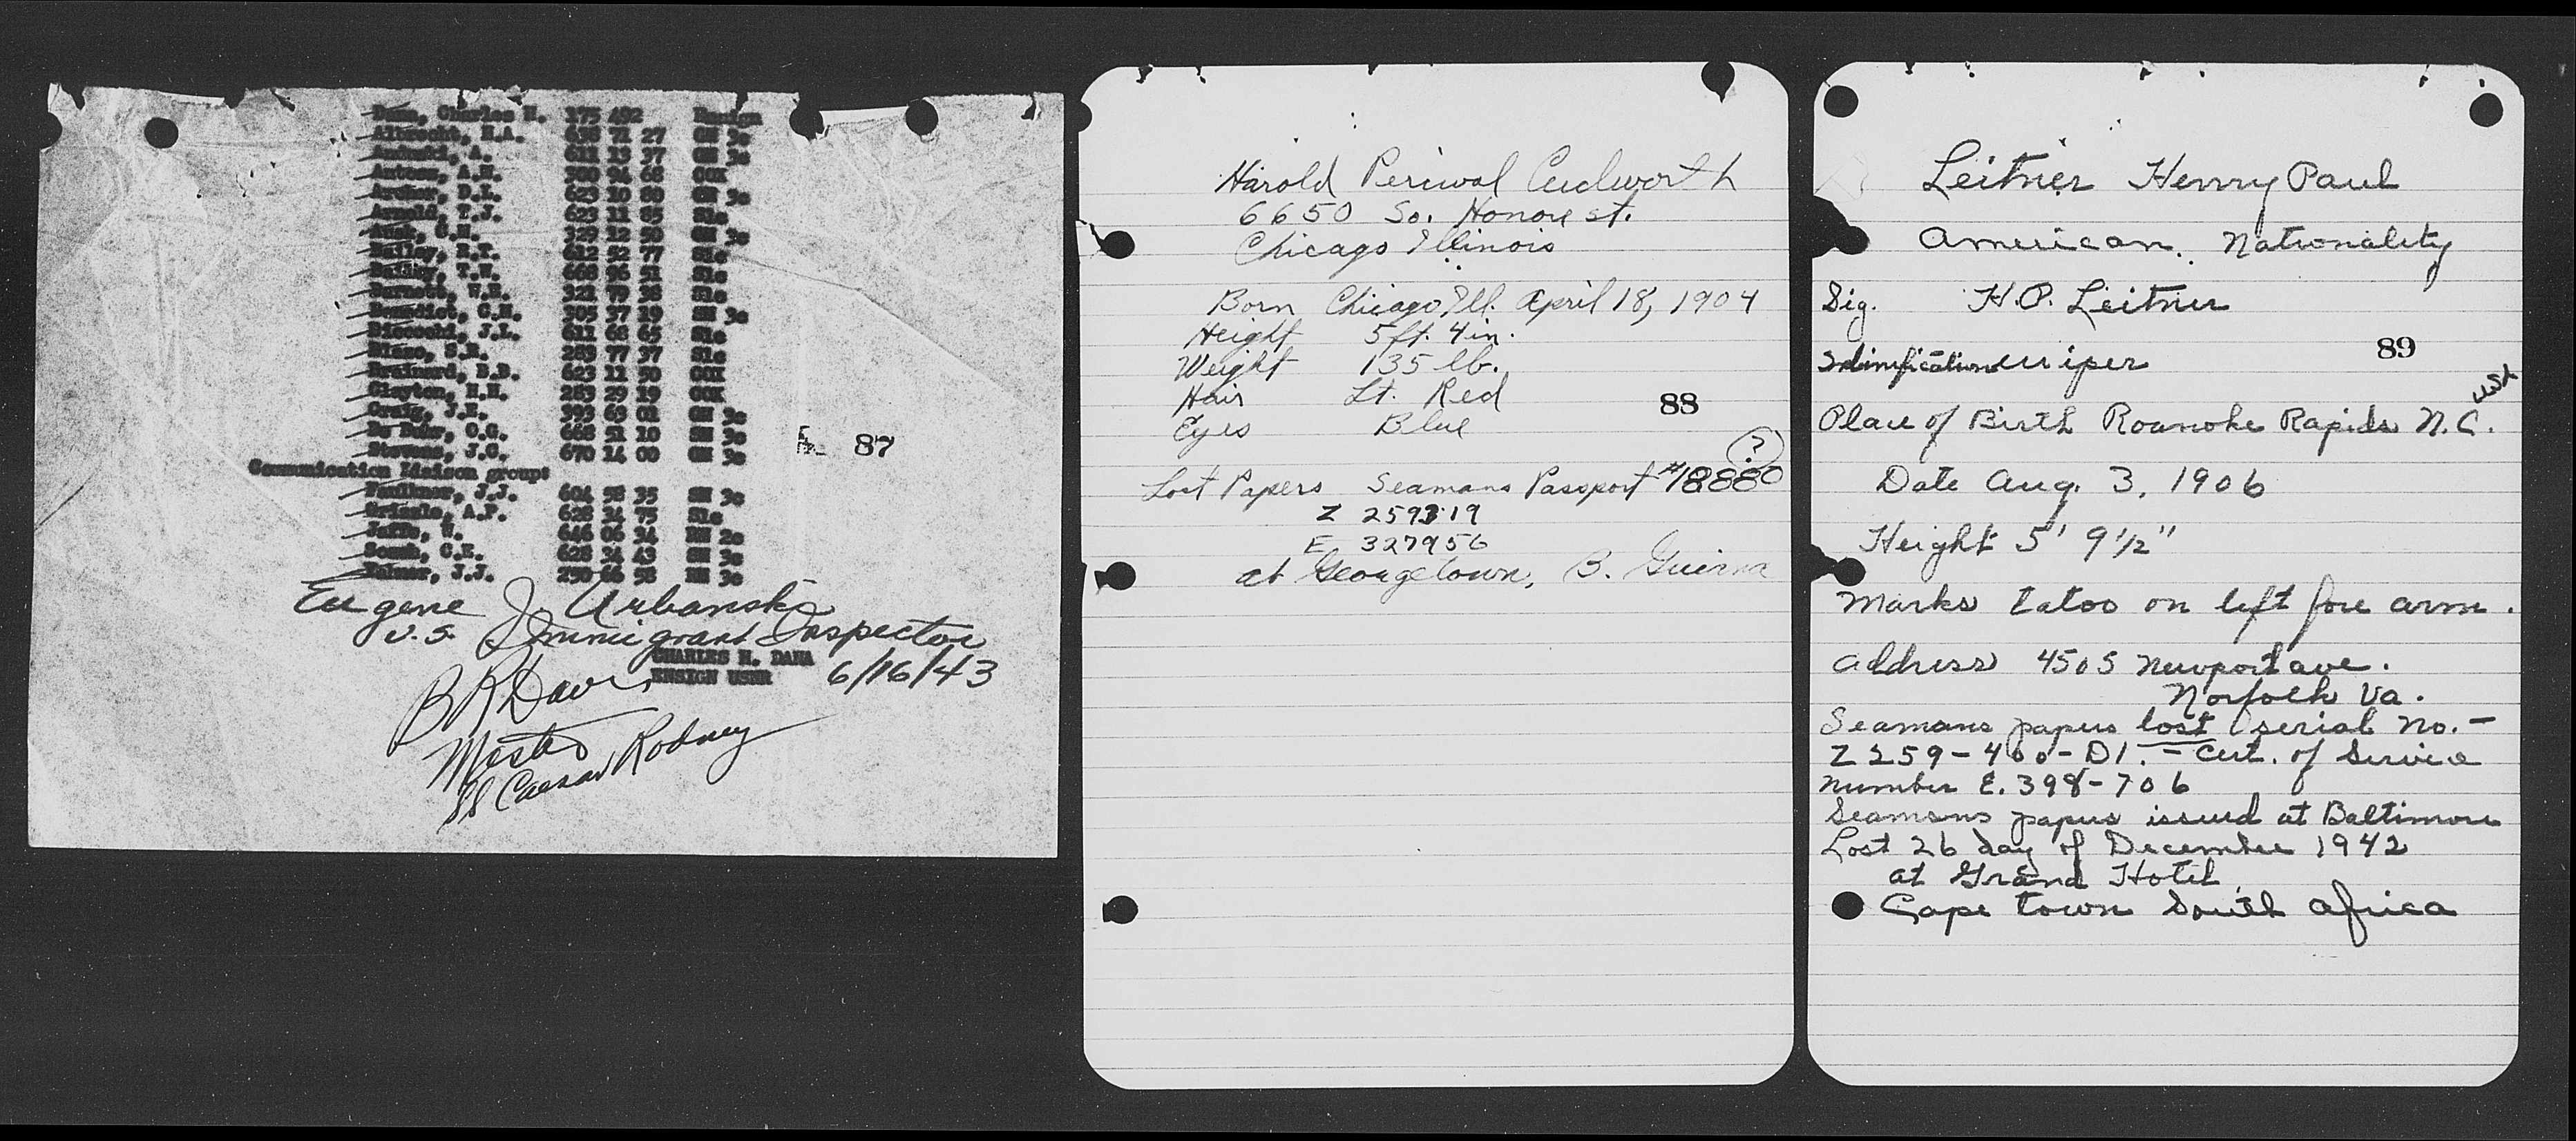 Charles H. 175 492 Ensign
Albrecht, H.A. 638 71 27 GM 3c
A. 611 13 37 GM 3c
A.H. 300 94 68 COX
Archer, D.L. 623 10 80 GM 3c
Arnold, T.J. 623 11 85 S1c
329 12 50 GM 3c
Bailey, R.T. 612 92 77 S1c
Bailey, T.W. 668 96 51 S1c
Barnett, W.E. 321 79 38 S1c
Benedict, C.H. 305 37 19 SM 3c
J.L. 611 68 65 S1c
283 77 37 S1c
Brainard, D.D. 623 11 50 COX
Clayton, H.H. 283 29 19 COX
Craig, J.E. 393 69 01 GM 3c
O.G. 668 51 10 SM 3c
Stevens, J.C. 670 14 00 GM 3c
87
Communication Liaison group:
Faulkner, J.J. 604 58 35 SM 3c
Grizzle, A.P. 628 34 75 S1c
Jaffe, 646 06 34 RM 2c
C.E. 628 34 43 SM 3c
J.J. 250 66 58 RM 3c
Eugene J Urbanski
U.S. Immigrant Inspector
CHARLES H. DANA
ENSIGN USNR 6/16/43
B R Davis
Master
SS Caesar Rodney
Harold Percival Cudworth
6650 So. Honore st.
Chicago Illinois
Born Chicago Ill. April 18, 1904
Height 5ft. 4in.
Weight 135 lb.
Hair Lt. Red
88
Eyes Blue
(?)
Lost Papers Seamans Passport #18880
Z 259319
E 327956
at Georgetown, B. Guiana
Leitner Henry Paul
American Nationality
Sig. H.P. Leitner
89
Wiper
Place of Birth Roanoke Rapids N.C. USA
Date Aug. 3, 1906
Height 5' 9 1/2"
Marks tatoo on left fore arm.
Address 4505 Newport ave.
Norfolk Va.
Seamans papers lost serial no. -
Z 259-400-D1. - Cert. of Service
number E. 398-706
Seamans papers issued at Baltimore
Lost 26 day of December 1942
at Grand Hotel
Cape Town South Africa